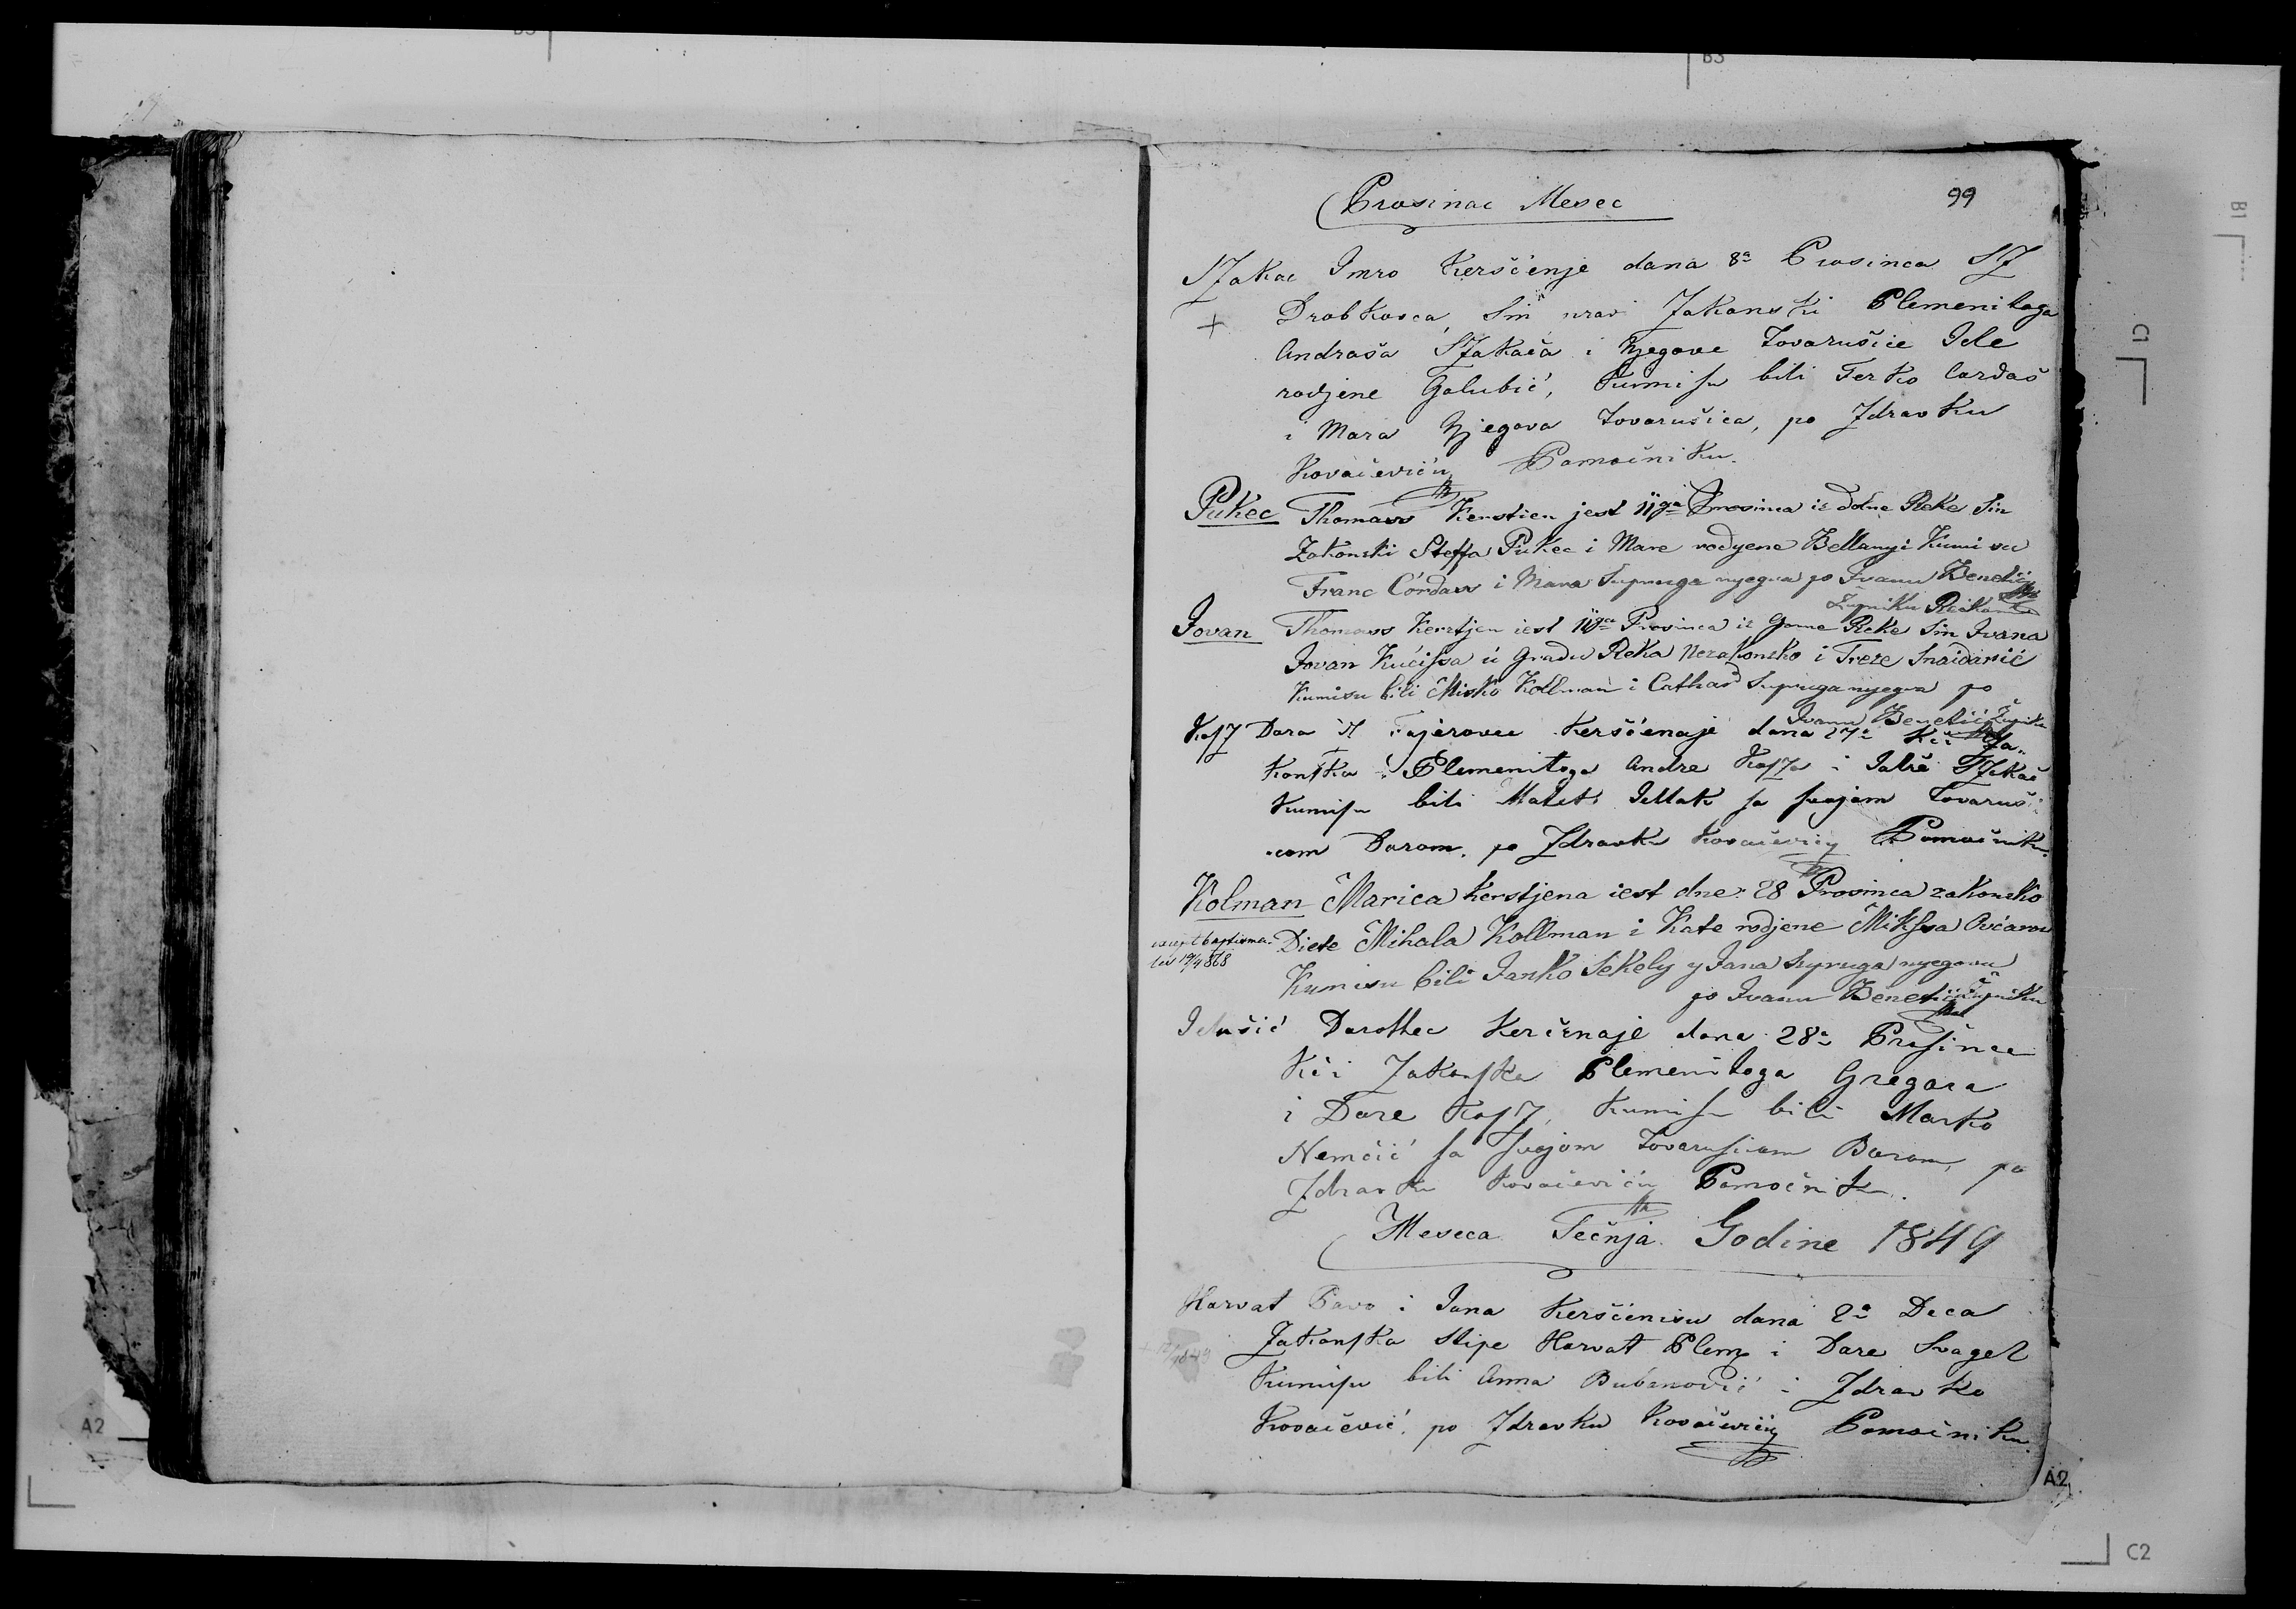 Prosinac Mesec
99
SZakac Imro Keršćenje dana 8a Prosinca SZ
Drobkovca, Sin Zakonski Plemenitoga
Andraša SZakača i Njegove Tovarušice Jele
rodjene Golubić, Kumisu bili Ferko Cordaš
i Mara Njegova Tovarušica, po Zdravku
Kovačeviću Pomoćniku.
Pukec Thomass Kerstien jest 11ga Prosinca iz dolne Reke Sin
Zakonski Steffa Pukec i Mare rodyene Bellanyi Kumi su
Franc Córdass i Mara Supruga nyegva po Ivanu Benetić
Župniku
Jovan Thomass Kerstjen iest 11ga Prosinca iz Gorne Reke Sin Ivana
Jovan Kućissa ú Gradu Reka Nezakonsko i Treze Snaidarić
Kumisu bili Misko Kollman i Cathar Supruga nyegva po
Ivanu Benetić Župniku
KosZ Dora iz Fajerovec Keršćenaje dana 27a Kći Za-
konska Plemenitoga Andre KosZa i Jalže SZakač
Kumisu bili Matek Jellak sa svojom Tovaruši-
com Darom. po Zdravku Kovačeviću Pomoćniku.
Kolman Marica Kerstjena iest dne 28 Prosinca zakonsko
except baptisma-
les 19/4 868
Diete Mihala Kollman i Kate rodjene Mikssa
Kumisu bili Janko Sékely y Jana Supruga nyegova
po Ivanu Benetić Župniku
Jelušić Dorothea Kerčenaje dana 28a Prosinca
Kći Zakonska Plemenitoga Gregora
i Dore KosZ, Kumisu bili Marko
Nemčić sa svojom Tovarusicom Barom, po
Zdravku Kovačeviću Pomoćniku.
Meseca Sečnja Godine 1849
Horvat Pavo i Jana Keršćenisu dana 2a Deca
Zakonska Stipe Horvat Plem i Dare Svagel
Kumisu bili Anna Bubanović i Zdravko
Kovačević, po Zdravku Kovačeviću Pomoćniku.
A2
A2
B1
C1
C2
B3
B3